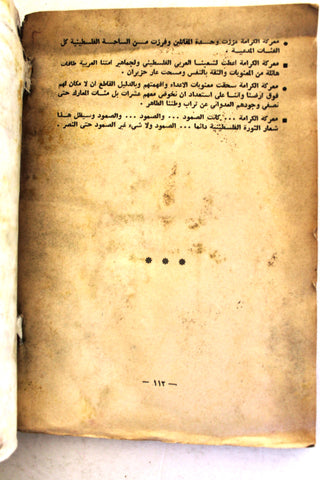 معركة الكرامة عززت وحدة المقاتلين وفرزت من الساحة الفلسطينية كل
الفئات المدعية .
معركة الكرامة اعطت لشعبنا العربي الفلسطيني ولجماهير امتنا العربية طاقات
هائلة من المعنويات والثقة بالنفس ومسحت عار حزيران .
معركة الكرامة سحقت معنويات الاعداء وافهمتهم وبالدليل القاطع ان لا مكان لهم
فوق ارضنا واننا على استعداد ان نخوض معهم عشرات بل مئات المعارك حتى
نصفي وجودهم العدواني عن تراب وطننا الطاهر .
معركة الكرامة ... كانت الصمود ... والصمود ... والصمود وسيظل هذا
شعار الثورة الفلسطينية دائما ... الصمود ولا شيء غير الصمود حتى النصر .
* * *
— ١١٢ —